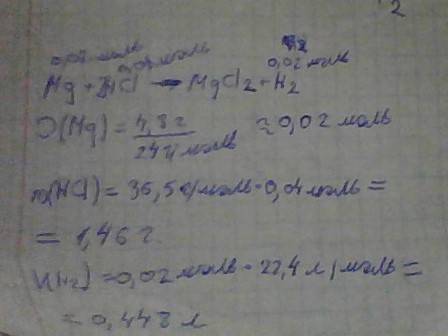 2
0,02 моль 0,04 моль 0,02 моль
Mg + 2HCl → MgCl2 + H2
υ(Mg) = 4,8 г / 24 г/моль ≈ 0,02 моль
m(HCl) = 36,5 г/моль · 0,04 моль =
= 1,46 г.
V(H2) = 0,02 моль · 22,4 л/моль =
= 0,448 л